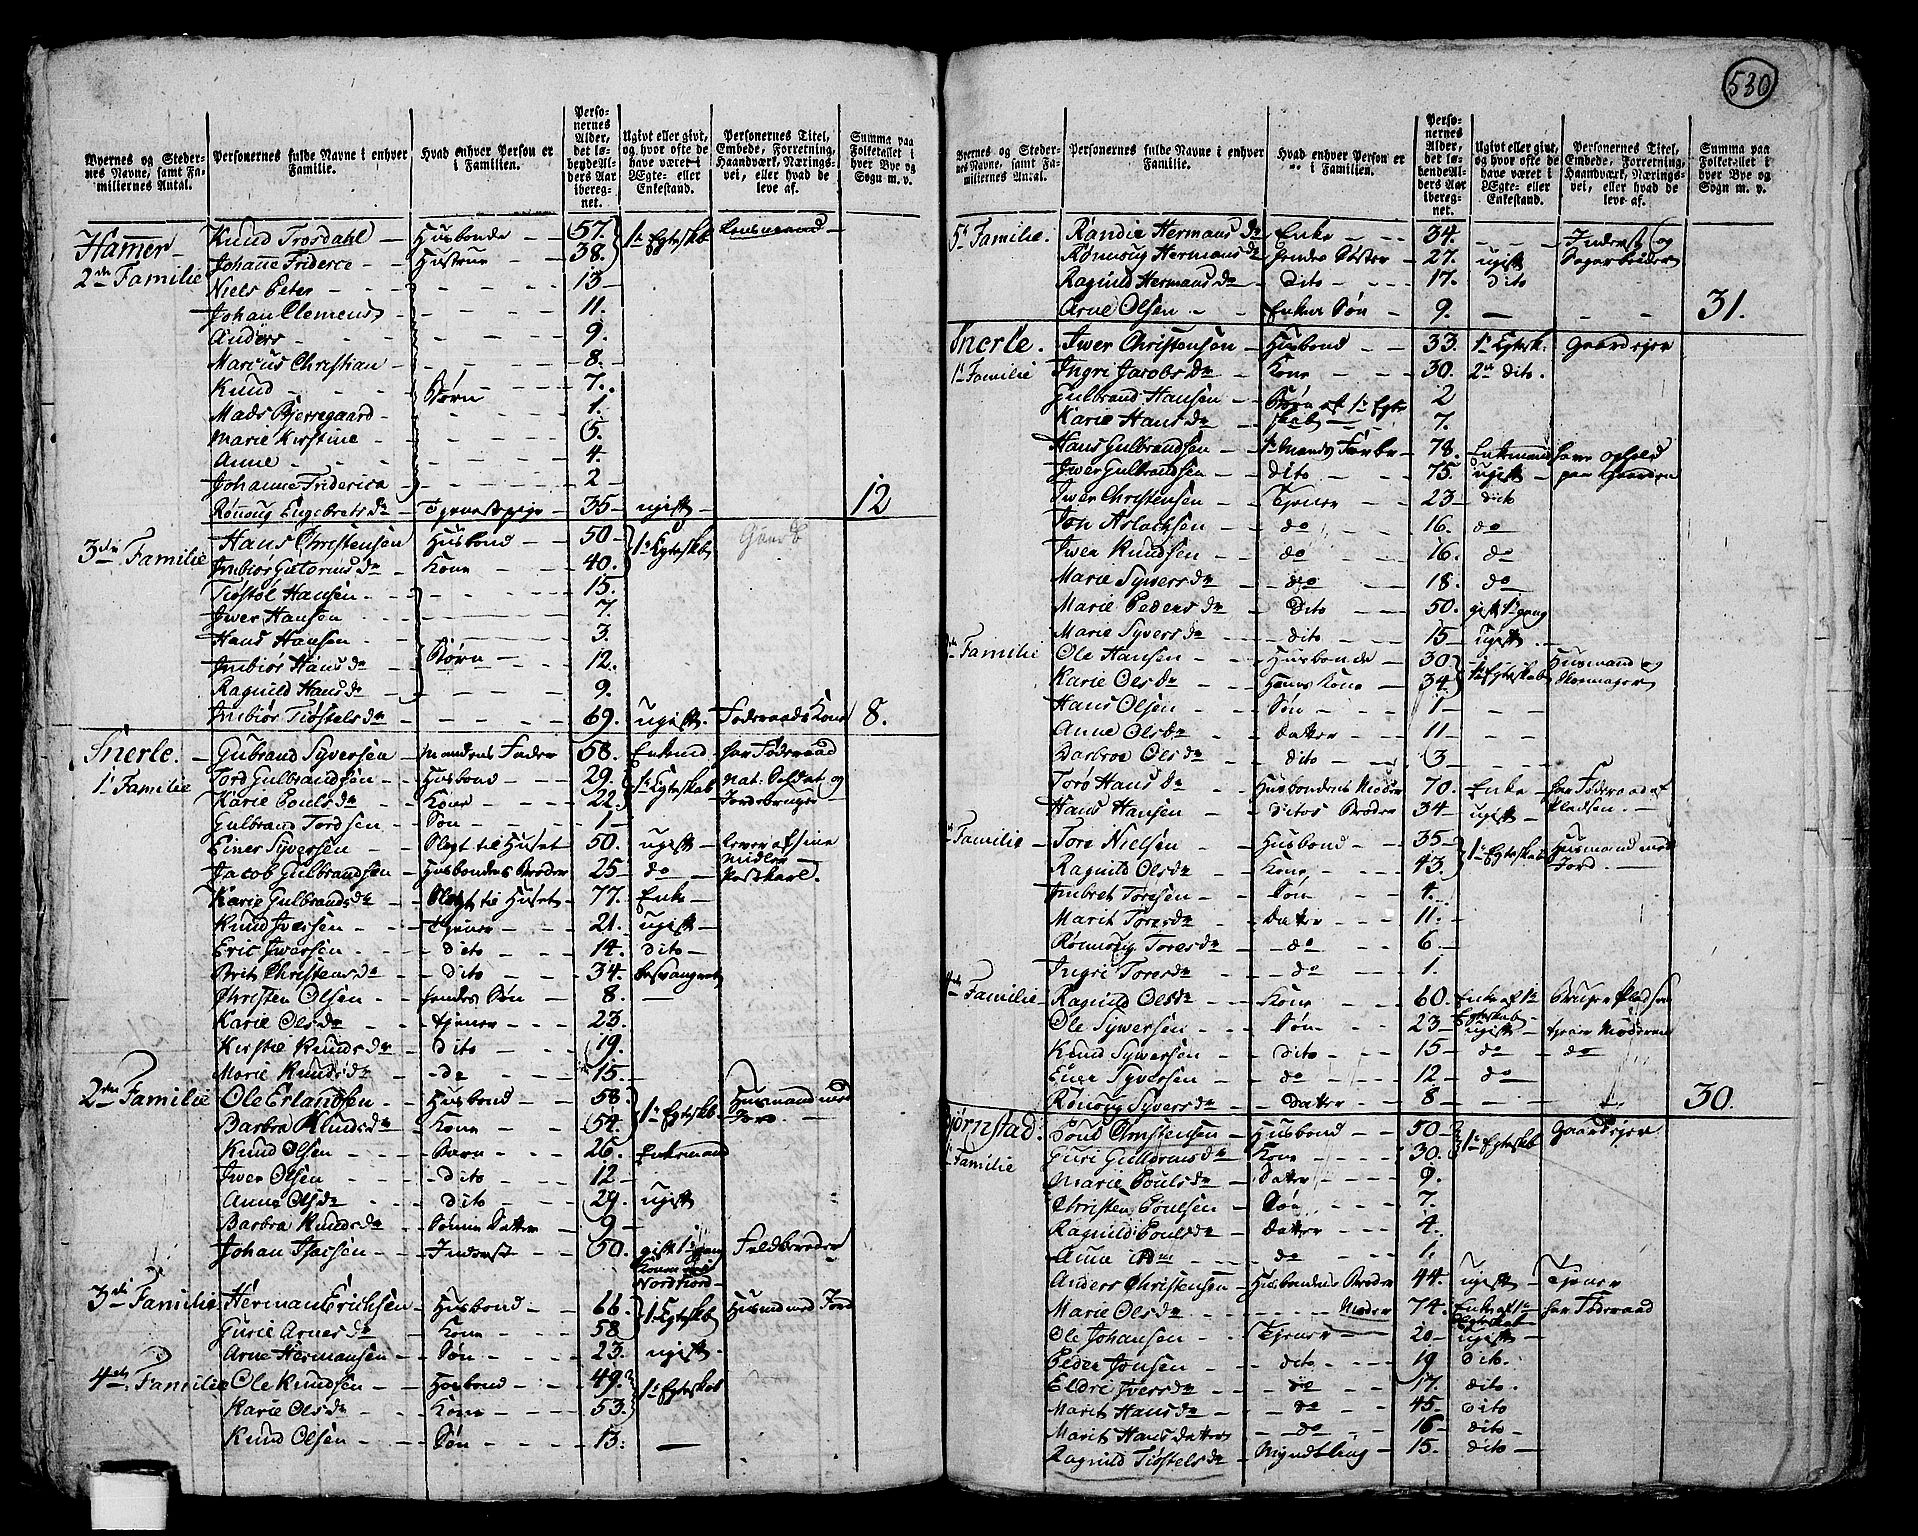 530
Byernes og Steder-
nes Navne, samt Fa-
miliernes Antal.
Personernes fulde Navne i enhver
Familie.
Hvad enhver Person er
i Familien.
Perso-
nernes
Alder,
det lø-
bende Al-
ders Aar
iberegnet.
Ugivt eller givt,
og hvor ofte de
have været i
Ægte- eller
Enkestand.
Personernes Titel,
Embede, Forretning,
Haandværk, Nærings-
vei, eller hvad de
leve af.
Summa paa
Folketallet i
hver Bye og
Sogn m. v.
Hamer Knud Trosdahl Husbonde 57. 1te Egteskb Lensmand
2den Familie Johanne Friderce Hustrue 38.
Niels Peter 13
Johan Clemens 11.
Anders 9.
Marcus Christian 8.
Knud Børn 7.
Mads Bjerregaard 1.
Marie Kirstine 5.
Anne 4.
Johanne Friderica 2
Rønnoug Engebretsdr Tjenestepige 35 ugift 12
3die Familie Hans Christensen Husbond 50 1te Egteskb
Imbiør Gutormsdr Kone 40.
Tiøstøl Hansen 15.
Iwer Hansen 7.
Hans Hansen 3.
Imbiør Hansdr Børn 12.
Ragnild Hansdr 9.
Imbiør Tiøstelsdr 69. ugift. Føderaads Kone 8.
Snerle. Gulbrand Syversen Mandens Fader 58. Enkmd har Føderaad
1te Familie Tord Gulbrandsen Husbond 29. 1te Egteskab Nat: Soldat og
Karie Poulsdr Kone 22. Jordebruger
Gulbrand Tordsen Søn 1
Einer Syversen Slegt til Huset 50. ugift lever af sine
Jacob Gulbrandsen Husbondens Broder 25 do midler
Postkarl.
Karie Gulbrandsdr Slegt til Huset 77. Enke
Knud Iversen Tjener 21. ugift
Eric Iwersen dito 14. dito
Brit Christensdr dito 34. besvangret
Christen Olsen hendes Søn 8.
Karie Olsdr tjener 23.
Kirstie Knudsdr dito 19.
Marie Knudsdr do 15.
2den Familie Ole Erlandsen Husbond 58. 1te Egteskb. Husmand med
Barbra Knudsdr Kone 54. Jord.
Knud Olsen Børn 26. Enkemand
Iwer Olsen dito 12
Anne Olsdr dito 29. ugift
Barbra Knudsdr Sønne Datter 9
Johan Isacsen Inderst 50. gift 1te gang Feldbereder
Nordfiord
3die Familie Herman Erichsen Husbond 66. 1te Egteskb Husmd med Jord
Gurie Arnesdr Kone 58
Arne Hermansen Søn 23. ugift
4de Familie Ole Knudsen Husbond 49. 1te Egteskab
Karie Olsdr Kone 53.
Knud Olsen Søn 13.
Byernes og Steder-
nes Navne, samt Fa-
miliernes Antal.
Personernes fulde Navne i enhver
Familie.
Hvad enhver Person er
i Familien.
Perso-
nernes
Alder,
det lø-
bende Al-
ders Aar
iberegnet.
Ugivt eller givt,
og hvor ofte de
have været i
Ægte- eller
Enkestand.
Personernes Titel,
Embede, Forretning,
Haandværk, Nærings-
vei, eller hvad de
leve af.
Summa paa
Folketallet i
hver Bye og
Sogn m. v.
5te Familie. Randie Hermansdr Enke 34. Inderst og
Rønnoug Hermansdr hendes Søster 27. ugift
Ragnild Hermansdr dito 17. dito
Arne Olsen Enkens Søn 9. 31.
Snerle. Iwer Christensen Husbond 33. 1te Egtesk. Gaardejer
1te Familie Ingri Jacobsdr Kone 30. 2det dito.
Gulbrand Hansen Børn af 1te Egte 2
Karie Hansdr skab 7.
Hans Gulbrandsen 1te Mands Farbr 78. Enkemand have ophold
Iwer Gulbrandsen dito 75. ugift paa Gaarden
Iwer Christensen Tjener 23 dito
Jon Aslachsen do 16. do
Iwer Knudsen do 16. do
Marie Sywersdr do 18. do
Marie Pedersdr dito 50. gift 1te gang
Marie Syversdr dito 15 ugift
Familie Ole Hansen Husbonde 30 1te Egteskab Husmand og
Karie Olsdr Hans Kone 34. skomager
Hans Olsen Søn 1
Anne Olsdr Datter 11
Barbroe Olsdr dito 3
Torø Hansdr Husbondens Moder 70. Enke har Føderaad af
Hans Hansen ditos Broder 34 ugift Pladsen.
Familie Tore Nielsen Husbond 35 1te Egteskab Husmand med
Ragnild Olsdr Kone 43. Jord.
Imbret Toresen Søn 4.
Marit Toresdr Datter 11.
Rønnoug Toresdr do 6
Ingri Toresdr do 1.
Familie Ragnild Olsdr Kone 60. Enke af 1te Bruger Pladsen
Egteskab
Ole Sywersen Søn 23 ugift tjener Moderen
Knud Sywersen dito 15 do do
Einer Syversen do 12 do
Rønnoug Syversdr Datter 8 30.
Bjørnstad. Poul Christensen Husbond 50 1te Egteskb Gaardejer
Familie Guri Guttormsdr Kone 30.
Marie Poulsdr Datter 9.
Christen Poulsen Søn 7.
Ragnild Poulsdr Datter 4.
Anna do 1.
Anders Christensen Husbondens Broder 44. ugift Tjener
Marie Olsdr Moder 74. Enke af 1te har Føderaad
Egteskab
Ole Johansen Tjener 20 ugift
Peder Jonsen dito 19 dito.
Eldri Iversdr do 17. dito.
Marit Hansdr do 45 dito
Marit Hans datter do 16 dito
Ragnild Tiøstelsdr Myndtling 15. dito